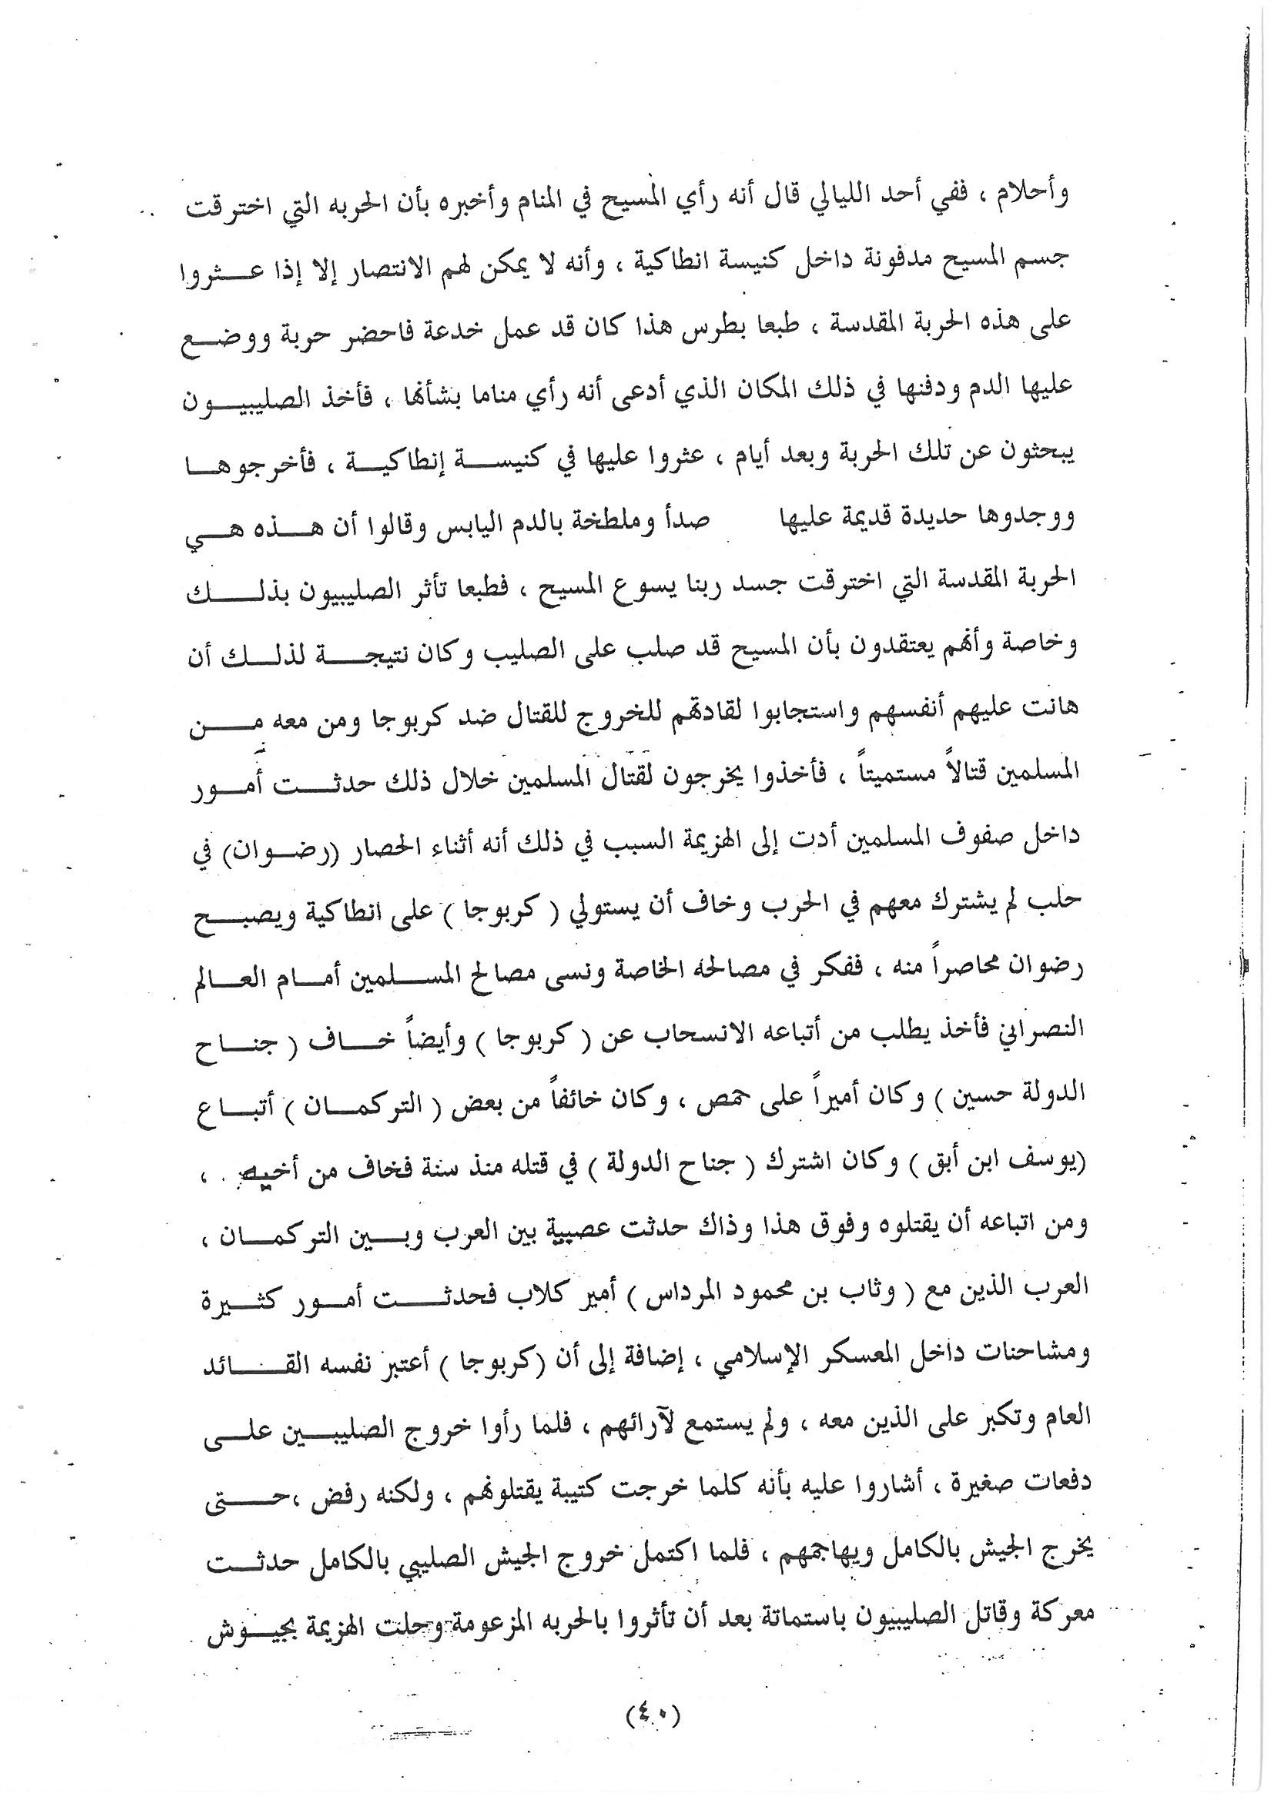 وأحلام ، ففي أحد الليالي قال أنه رأي المسيح في المنام وأخبره بأن الحربه التي اخترقت
جسم المسيح مدفونة داخل كنيسة انطاكية ، وأنه لا يمكن لهم الانتصار إلا إذا عثروا
على هذه الحربة المقدسة ، طبعا بطرس هذا كان قد عمل خدعة فاحضر حربة ووضع
عليها الدم ودفنها في ذلك المكان الذي أدعى أنه رأي مناما بشأنها ، فأخذ الصليبيون
يبحثون عن تلك الحربة وبعد أيام ، عثروا عليها في كنيسة إنطاكية ، فأخرجوها
ووجدوها حديدة قديمة عليها صدأ وملطخة بالدم اليابس وقالوا أن هذه هي
الحربة المقدسة التي اخترقت جسد ربنا يسوع المسيح ، فطبعا تأثر الصليبيون بذلك
وخاصة وأنهم يعتقدون بأن المسيح قد صلب على الصليب وكان نتيجة لذلك أن
هانت عليهم أنفسهم واستجابوا لقادتهم للخروج للقتال ضد كربوجا ومن معه من
المسلمين قتالاً مستميتاً ، فأخذوا يخرجون لقتال المسلمين خلال ذلك حدثت أمور
داخل صفوف المسلمين أدت إلى الهزيمة السبب في ذلك أنه أثناء الحصار (رضوان) في
حلب لم يشترك معهم في الحرب وخاف أن يستولي ( كربوجا ) على انطاكية ويصبح
رضوان محاصراً منه ، ففكر في مصالحه الخاصة ونسى مصالح المسلمين أمام العالم
النصراني فأخذ يطلب من أتباعه الانسحاب عن ( كربوجا ) وأيضاً خاف ( جناح
الدولة حسين ) وكان أميراً على حمص ، وكان خائفاً من بعض ( التركمان ) أتباع
(يوسف ابن أبق ) وكان اشترك ( جناح الدولة ) في قتله منذ سنة فخاف من أخيه ،
ومن اتباعه أن يقتلوه وفوق هذا وذاك حدثت عصبية بين العرب وبين التركمان ،
العرب الذين مع ( وثاب بن محمود المرداس ) أمير كلاب فحدثت أمور كثيرة
ومشاحنات داخل المعسكر الإسلامي ، إضافة إلى أن (كربوجا ) أعتبر نفسه القائد
العام وتكبر على الذين معه ، ولم يستمع لآرائهم ، فلما رأوا خروج الصليبين على
دفعات صغيرة ، أشاروا عليه بأنه كلما خرجت كتيبة يقتلونهم ، ولكنه رفض ،حتى
يخرج الجيش بالكامل ويهاجمهم ، فلما اكتمل خروج الجيش الصليبي بالكامل حدثت
معركة وقاتل الصليبيون باستماتة بعد أن تأثروا بالحربه المزعومة وحلت الهزيمة بجيوش
(٤٠)